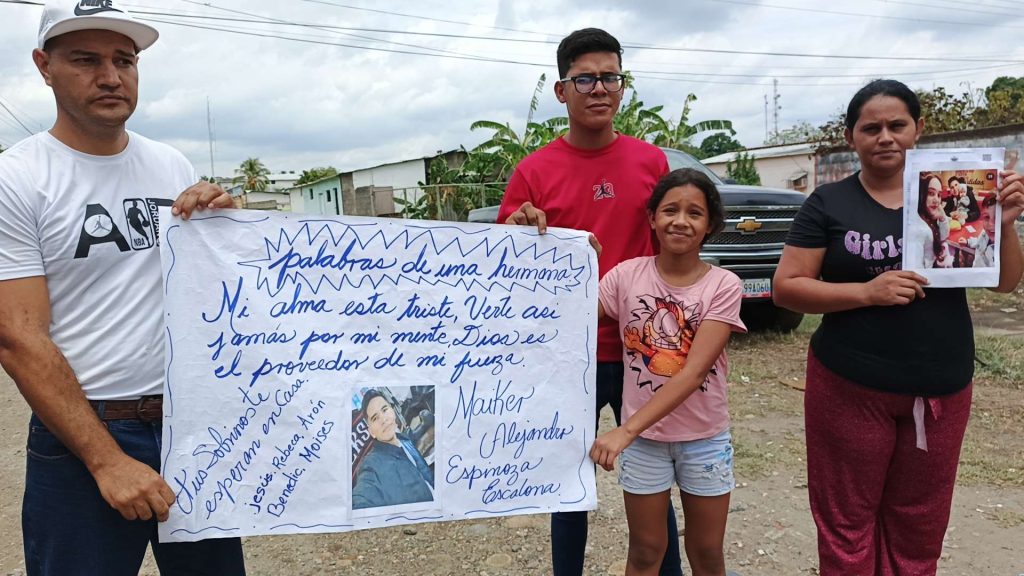 palabras de una hermana
Mi alma esta triste, Verte asi
jamás por mi mente, Dios es
el proveedor de mi fueza.
Tus Sobrinos te
esperan en Casa.
jesús, Rebeca, Arón
Moises
Maiker
Alejandro
Espinoza
Escalona
NBA
Girls